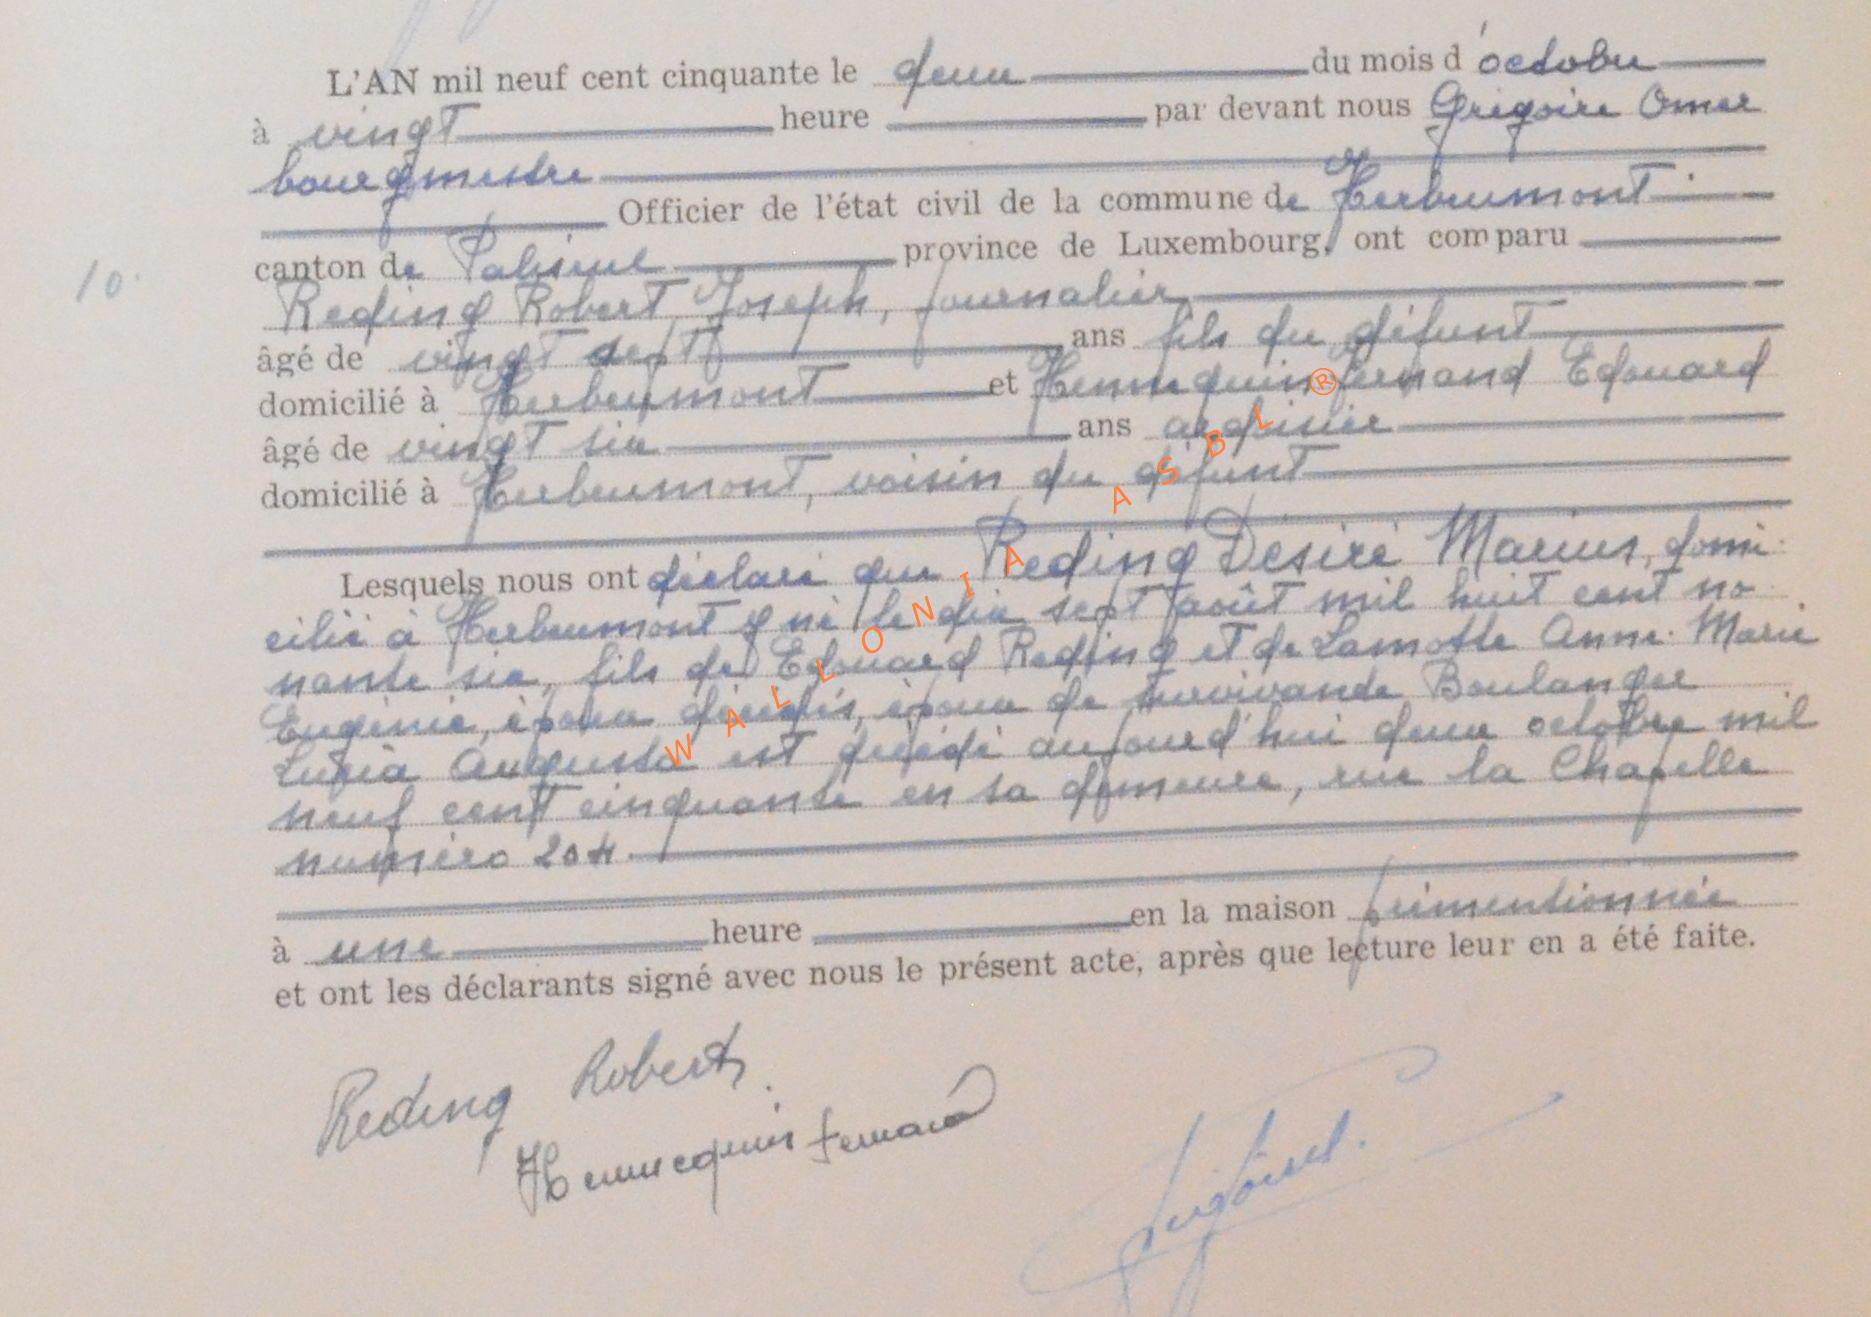 L'AN mil neuf cent cinquante le deux du mois d'octobre
à vingt heure par devant nous Grégoire Omer
bourgmestre
Officier de l'état civil de la commune de Herbeumont
canton de Paliseul province de Luxembourg, ont comparu
10.
Reding Robert, Joseph, journalier
âgé de vingt sept ans fils du défunt
domicilié à Herbeumont et Hennequin Fernand Edouard
âgé de vingt six ans ardoisier
domicilié à Herbeumont, voisin du défunt
Lesquels nous ont déclaré que Reding Désiré Marius, domi-
cilié à Herbeumont y né le dix sept août mil huit cent no
nante six, fils de Edouard Reding et de Lamotte Anne-Marie
Eugénie, époux décédés, époux de survivante Boulanger
Augusta est décédé aujourd'hui deux octobre mil
neuf cent cinquante en sa demeure, rue la Chapelle
numéro 204.
à une heure en la maison prémentionnée
et ont les déclarants signé avec nous le présent acte, après que lecture leur en a été faite.
Reding Robert
Hennequin Fernand
WALLONIA ASBL ®